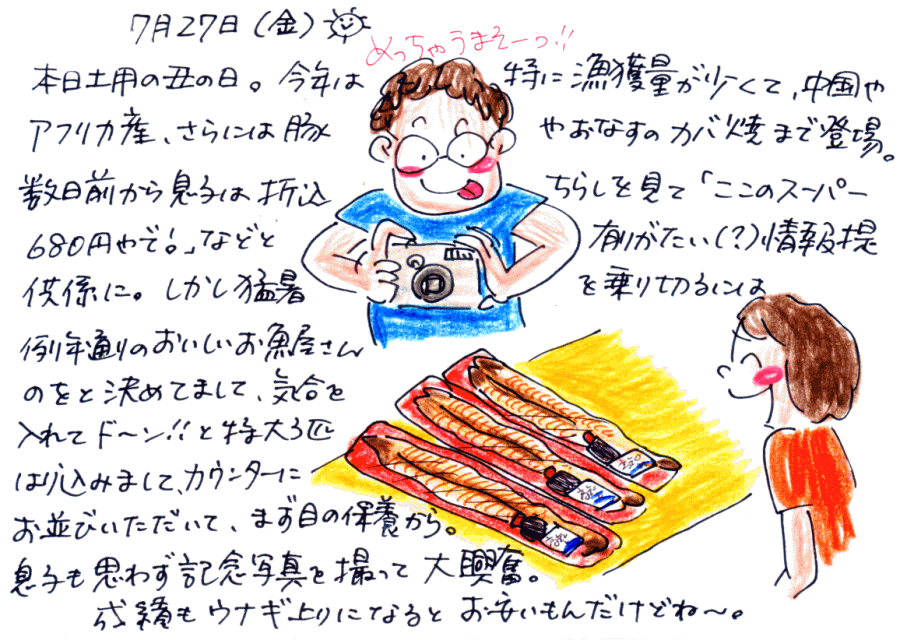 7月27日（金）
めっちゃうまそーっ!!
本日土用の丑の日。今年は 特に漁獲量が少くて、中国や
アフリカ産、さらには豚 やおなすのカバ焼まで登場。
数日前から息子は折込 ちらしを見て「ここのスーパー
680円やで!」などと 有りがたい(?)情報提
供係に。しかし猛暑 を乗り切るには
例年通りのおいしいお魚屋さん
のをと決めてまして、気合を
入れてド〜ン!!と特大3匹
はり込みまして、カウンターに
お並びいただいて、まず目の保養から。
息子も思わず記念写真を撮って大興奮。
成績もウナギ上りになるとお安いもんだけどね〜。